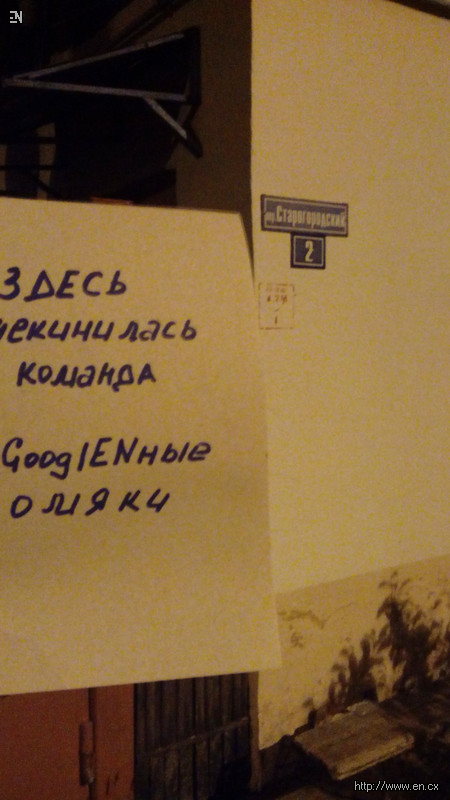 EN
ЗДЕСЬ
чекинилась
команда
GooglENные
омяки
пер. Старогородский
2
http://www.en.cx